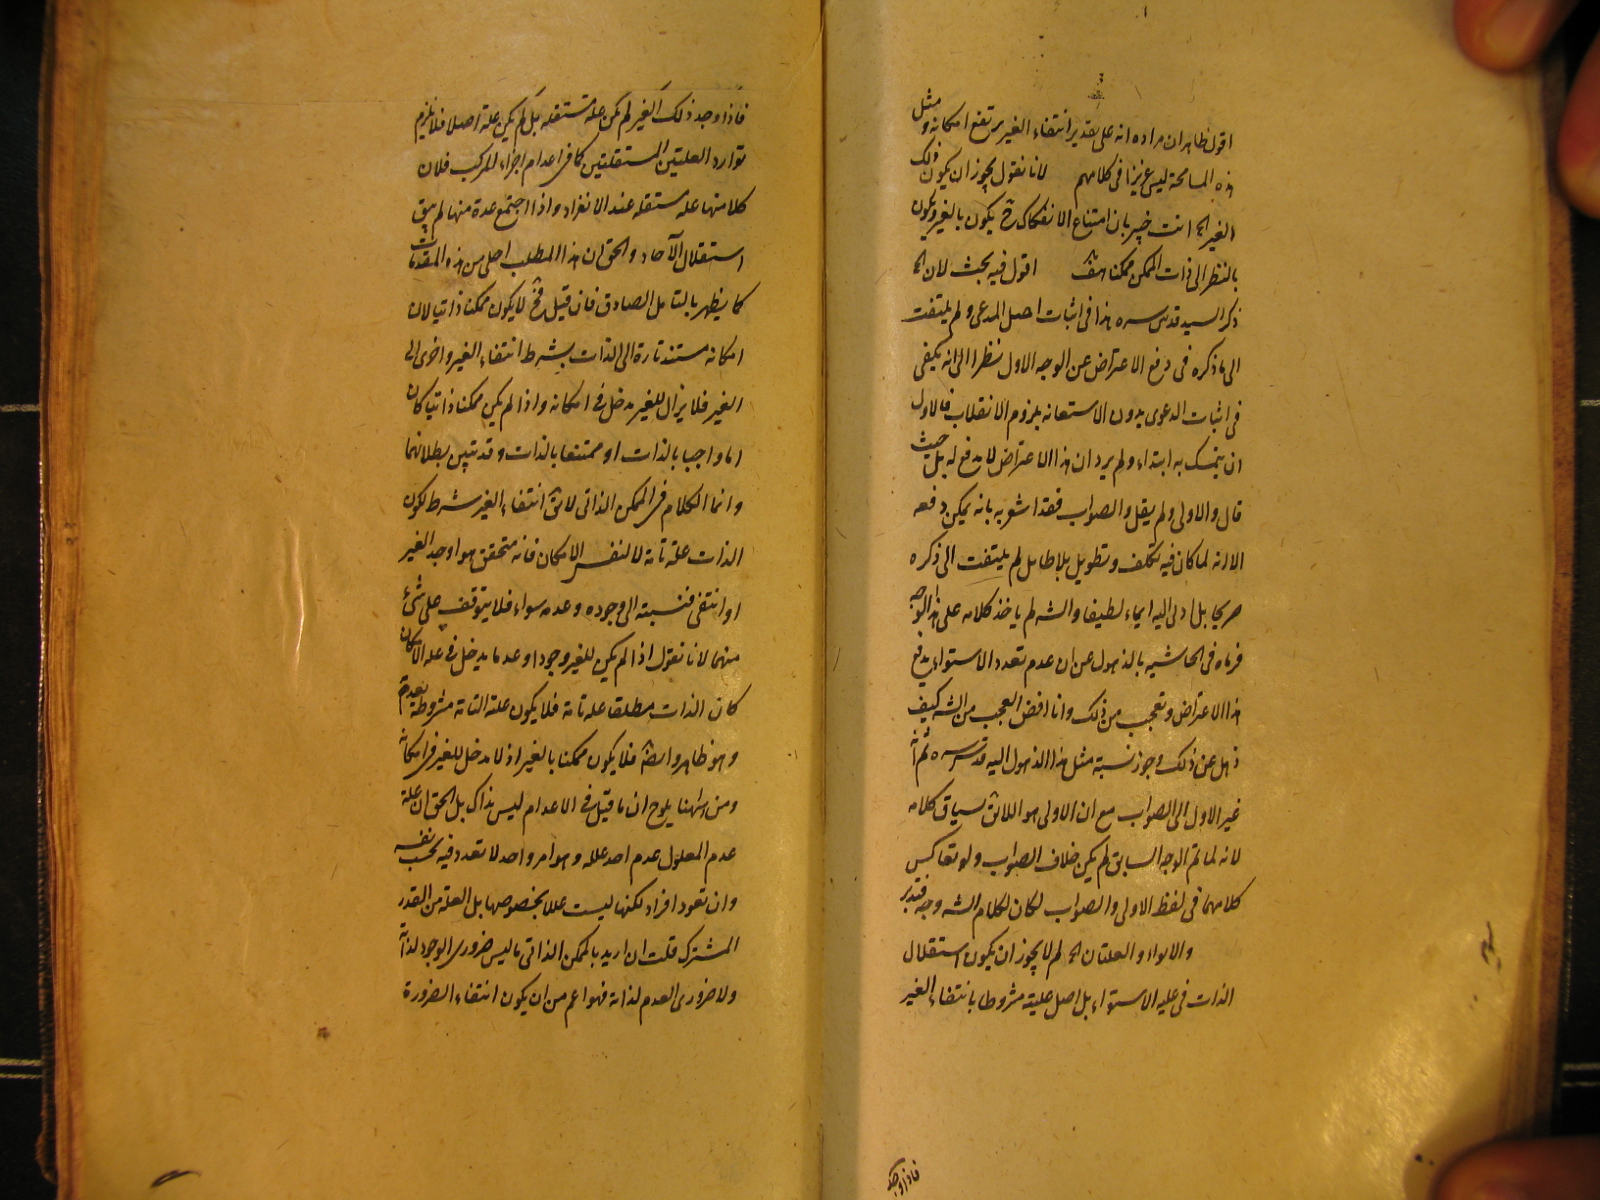 اقول ظاهر ان مراده انه على تقدير انتفاء الغير يرتفع امكانه ومثل
هذه المسامحة ليس عزيزا فى كلامهم لانا نقول يجوز ان يكون ذلك
الغير الخ انت خبير بان امتناع الانفكاك ح يكون بالغير ويكون
بالنظر الى ذات الممكن ممكنا هف اقول فيه بحث لان ما
ذكر السيد قدس سره هذا فى اثبات اصل المدعى ولم يلتفت
الى ما ذكره فى دفع الاعتراض عن الوجه الاول نظرا الى انه يكفى
فى اثبات الدعوى بدون الاستعانة بلزوم الانقلاب فالاولى
ان يتمسك به ابتداء ولم يرد ان هذا الاعتراض لا مدفع له بل حيث
قال والاولى ولم يقل والصواب فقد اشعر به بانه يمكن دفعه
الا انه لما كان فيه تكلف وتطويل بلا طايل لم يلتفت الى ذكره
صريحا بل اومى اليه ايماء لطيفا والشه لم ياخذ كلامه على هذا الوجه
فرماه فى الحاشيه بالذهول عن ان عدم تعدد الاستواء يدفع
هذا الاعتراض وتعجب من ذلك وانا اقضى العجب من الشه كيف
ذهل عن ذلك وجوز نسبة مثل هذا الذهول اليه قدس سره ثم انه
غير الاولى الى الصواب مع ان الاولى هو اللائق بسياق كلامه
لانه لما تم الوجه السابق لم يكن خلاف الصواب ولو تعاكس
كلامهما فى لفظ الاولى والصواب لكان لكلام الشه وجه فتدبر
والا توارد العلتان الخ لم لا يجوز ان يكون استقلال
الذات فى علية الاستواء بل اصل عليته مشروطا بانتفاء الغير
فاذا وجد
فاذا وجد ذلك الغير لم يكن علة مستقله بل لم يكن علة اصلا فلا يلزم
توارد العلتين المستقلتين كما فى اعدام اجزاء المركب فلان
كلا منها علة مستقله عند الانفراد واذا اجتمع عدة منها لم يبق
استقلال الآحاد والحق ان هذا المطلب اجلى من هذه المقدمات
كما يظهر بالتامل الصادق فان قيل فح لا يكون ممكنا ذاتيا لان
امكانه مستند تارة الى الذات بشرط انتفاء الغير واخرى الى
الغير فلا يزال للغير مدخل فى امكانه واذا لم يكن ممكنا ذاتيا كان
اما واجبا بالذات او ممتنعا بالذات وقد تبين بطلانهما
وانما الكلام فى الممكن الذاتى لا يق انتفاء الغير شرط لكون
الذات علة تامة لا لنفس الامكان فانه متحقق سواء وجد الغير
او انتفى فنسبته الى وجوده وعدمه سواء فلا يتوقف على شئ
منهما لانا نقول اذا لم يكن للغير وجودا وعدما مدخل فى علة الامكان
كان الذات مطلقا علة تامة فلا يكون علته التامة مشروطة بعدم
وهو ظاهر وايضا فلا يكون ممكنا بالغير اذ لا مدخل للغير فى امكانه
ومن ههنا يلوح ان ما قيل فى الاعدام ليس بذاك بل الحق ان علة
عدم المعلول عدم احد علله وهو امر واحد لا تعدد فيه بحسب نفسه
وان تعدد افراده لكنها ليست عللا بخصوصها بل العلة من القدر
المشترك قلت ان اريد بالممكن الذاتى ما ليس ضرورى الوجود لذاته
ولا ضرورى العدم لذاته فهو اعم من ان يكون انتفاء الضرورة